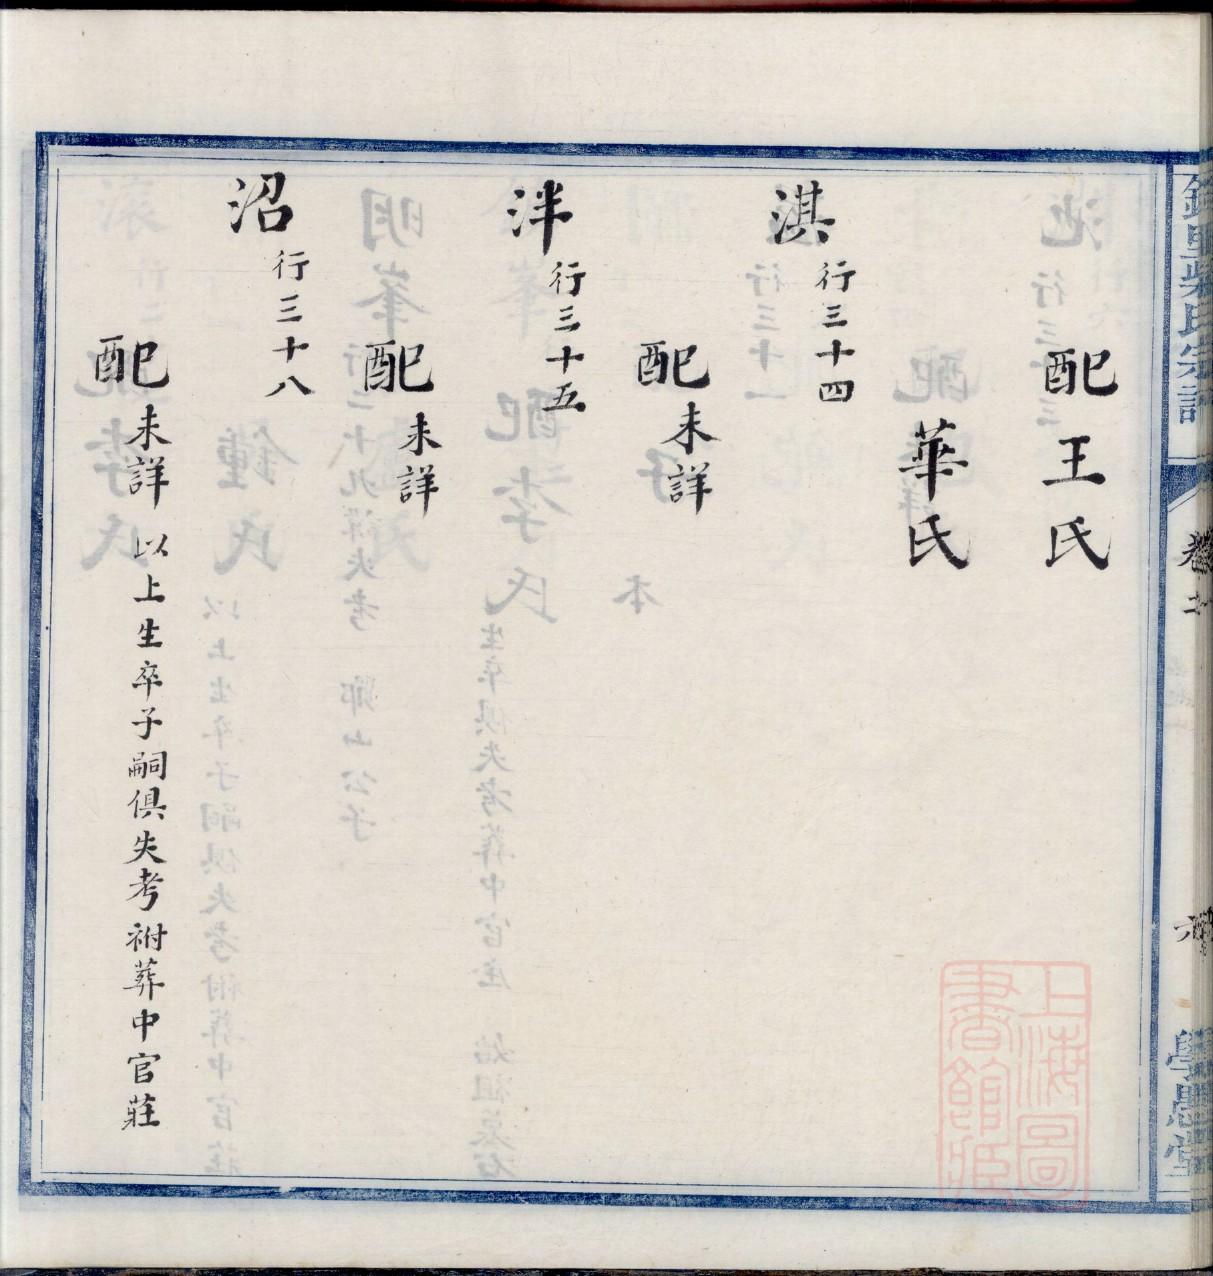 配王氏
華氏
淇 行三十四
配 未詳
泮 行三十五
配 未詳
沼 行三十八
配 未詳 以上生卒子嗣俱失考祔葬中官莊
氏宗譜
卷
六
學思堂
上海圖書館藏